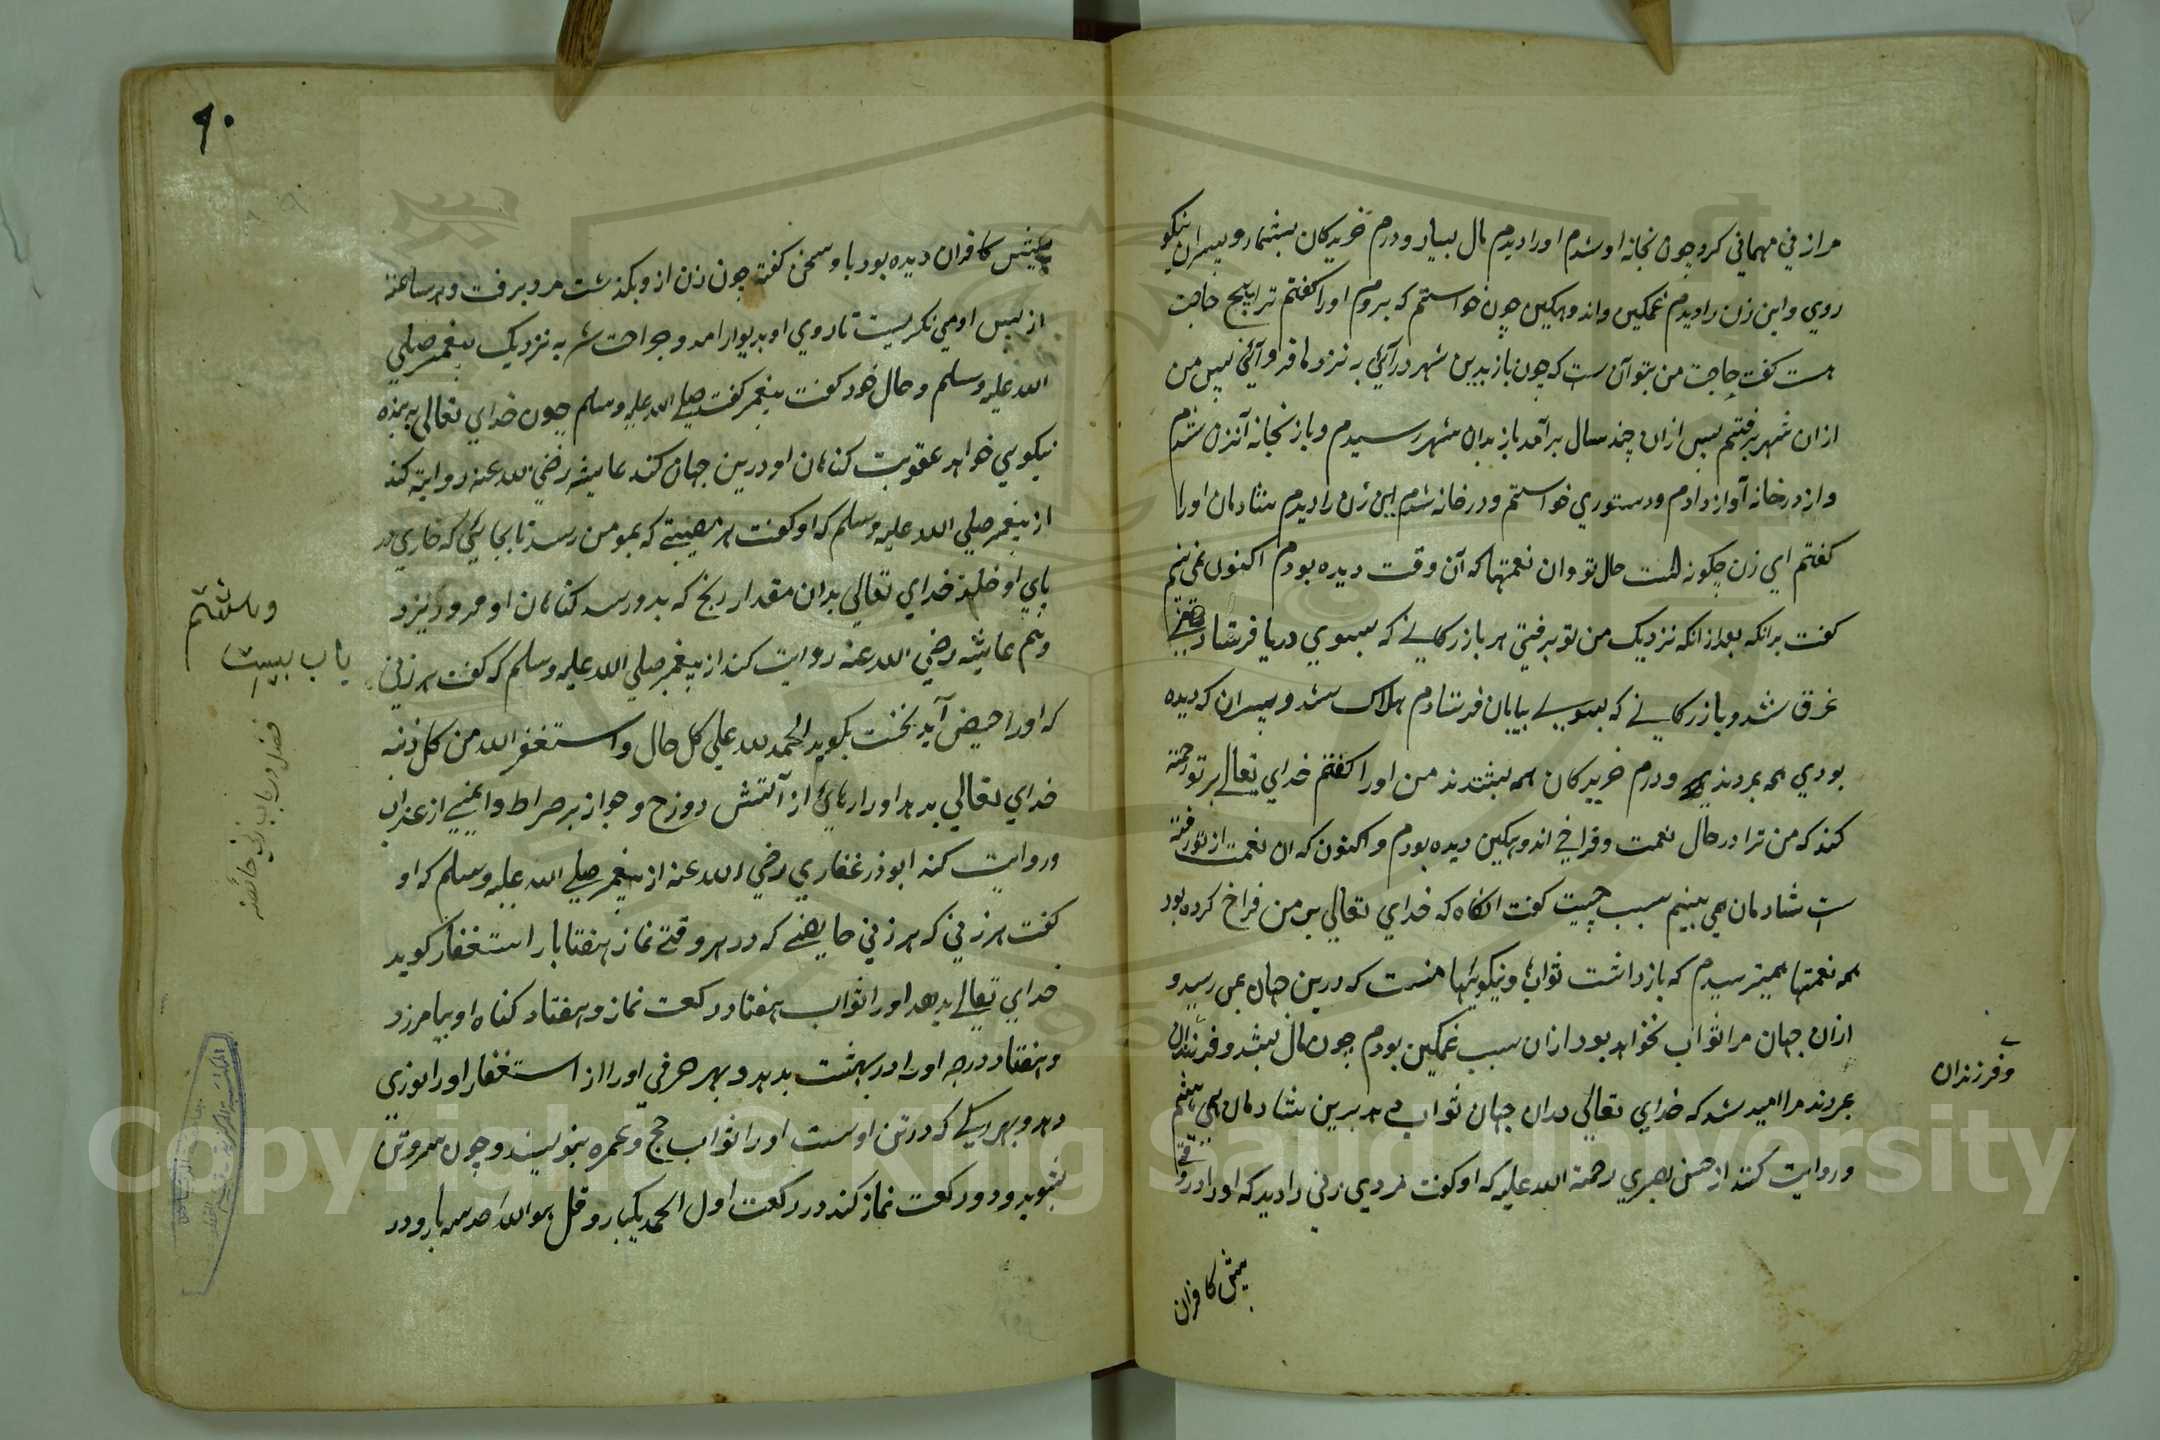 مرا زني مهماني كرد چون بخانه او شدم اورا ديدم مال بسيار و درم خريدكان بيشمار و پسران نيكو
روي و اين زن را ديدم غمكين و اندوهكين چون خواستم كه بروم اورا كفتم ترا هيچ حاجت
هست كفت حاجت من بتو آن ست كه چون باز بدين شهر درآئي به نزد ما فرو آئي پس من
ازان شهر برفتم پس ازان چند سال برآمد باز بدان شهر رسيدم و باز بخانه آنزن شدم
و از در خانه آواز دادم و دستوري خواستم و در خانه شدم اين زن را ديدم شادمان اورا
كفتم اي زن چكونه است حال تو و ان نعمتها كه آن وقت ديده بودم اكنون نمي بينم
كفت برانكه بعد ازانكه نزديك من تو برفتي هر بازركاني كه بسوي دريا فرستاد
غرق شد و بازركاني كه بسوي بيابان فرستادم هلاك شد و پسران كه ديده
بودي همه بمردند و درم خريدكان همه بشدند من اورا كفتم خداي تعالي بر تو رحمت
كند كه من ترا در حال نعمت و فراخي اندوهكين ديده بودم و اكنون كه ان نعمت از تو رفته
است شادمان مي بينم سبب چيست كفت انكاه كه خداي تعالي بر من فراخ كرده بود
همه نعمتها ميترسيدم كه بازداشت ثوابها و نيكوئيها منست كه درين جهان بمن رسيد و
ازان جهان مرا ثواب نخواهد بود ازان سبب غمكين بودم چون مال بشد و فرزندان
بمردند مرا اميد شد كه خداي تعالي بدان جهان ثواب دهد برين شادمان
و روايت كنند از حسن بصري رحمة الله عليه كه او كفت مردي زني را ديد كه اورا در وقتي
و فرزندان
پيش كافران
٩٠
پيش كافران ديده بود با وسخن كفت چون زن از و بكذشت مرد برفت و هر ساعت
از پس او مي نكريست تا روي او بديوار امد و جراحت شد به نزديك پيغمبر صلي
الله عليه وسلم و حال خود كفت پيغمبر كفت صلي الله عليه وسلم چون خداي تعالي به بنده
نيكوي خواهد عقوبت كناهان او درين جهان كند عايشه رضي الله عنه روايت كند
از پيغمبر صلي الله عليه وسلم كه او كفت هر مصيبتي كه بمومن رسد تا بجائي كه خاري در
پاي او خلد خداي تعالي بدان مقدار رنج كه بدو رسد كناهان او فرو ريزد
و هم عايشه رضي الله عنه روايت كند از پيغمبر صلي الله عليه وسلم كه كفت هر زني
كه اورا حيض آيد نخست بكويد الحمد لله علي كل حال و استغفر الله من كل ذنب
خداي تعالي بدهد اورا رهائي از آتش دوزخ و جواز بر صراط و ايمني از عذاب
و روايت كند ابوذر غفاري رضي الله عنه از پيغمبر صلي الله عليه وسلم كه او
كفت هر زني كه هر زني حايضي كه در هر وقتي نماز هفتاد بار استغفار كويد
خداي تعالي بدهد اورا ثواب هفتاد ركعت نماز و هفتاد كناه او بيامرزد
و هفتاد درجه اورا در بهشت بدهد و بهر حرفي اورا از استغفار اورا نوري
دهد و بهر ركي كه در تن اوست اورا ثواب حج و عمره بنويسند و چون سر و تن
بشويد و دو ركعت نماز كند در ركعت اول الحمد يكبار و قل هو الله احد سه بار و در
باب بيست
و هشتم
فضل در باب زني حائضه
Copyright © King Saud University